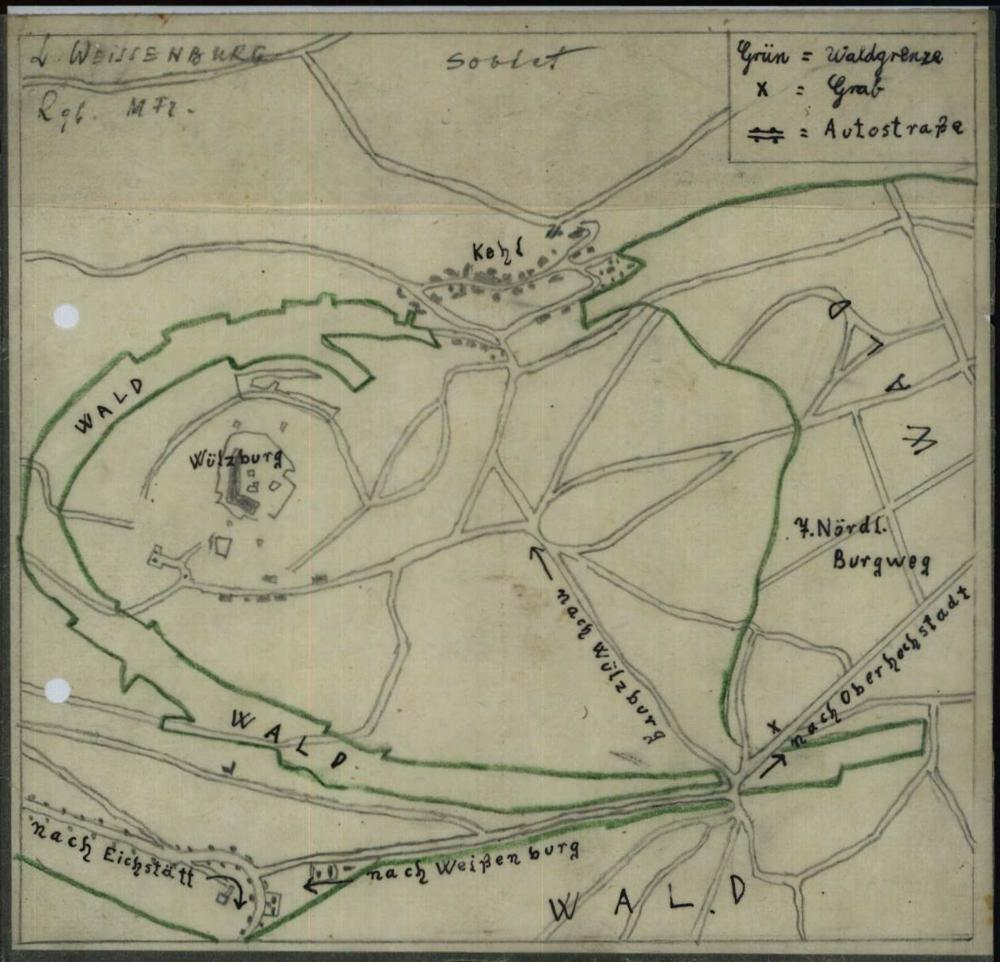 L. WEISSENBURG
Rgb. Mfr.
Sobiet
Grün = Waldgrenze
x = Grab
= Autostraße
Kehl
WALD
Wülzburg
WALD
7. Nördl.
Burgweg
nach Wülzburg
nach Oberhochstadt
x
nach Eichstätt
nach Weißenburg
WALD
WALD